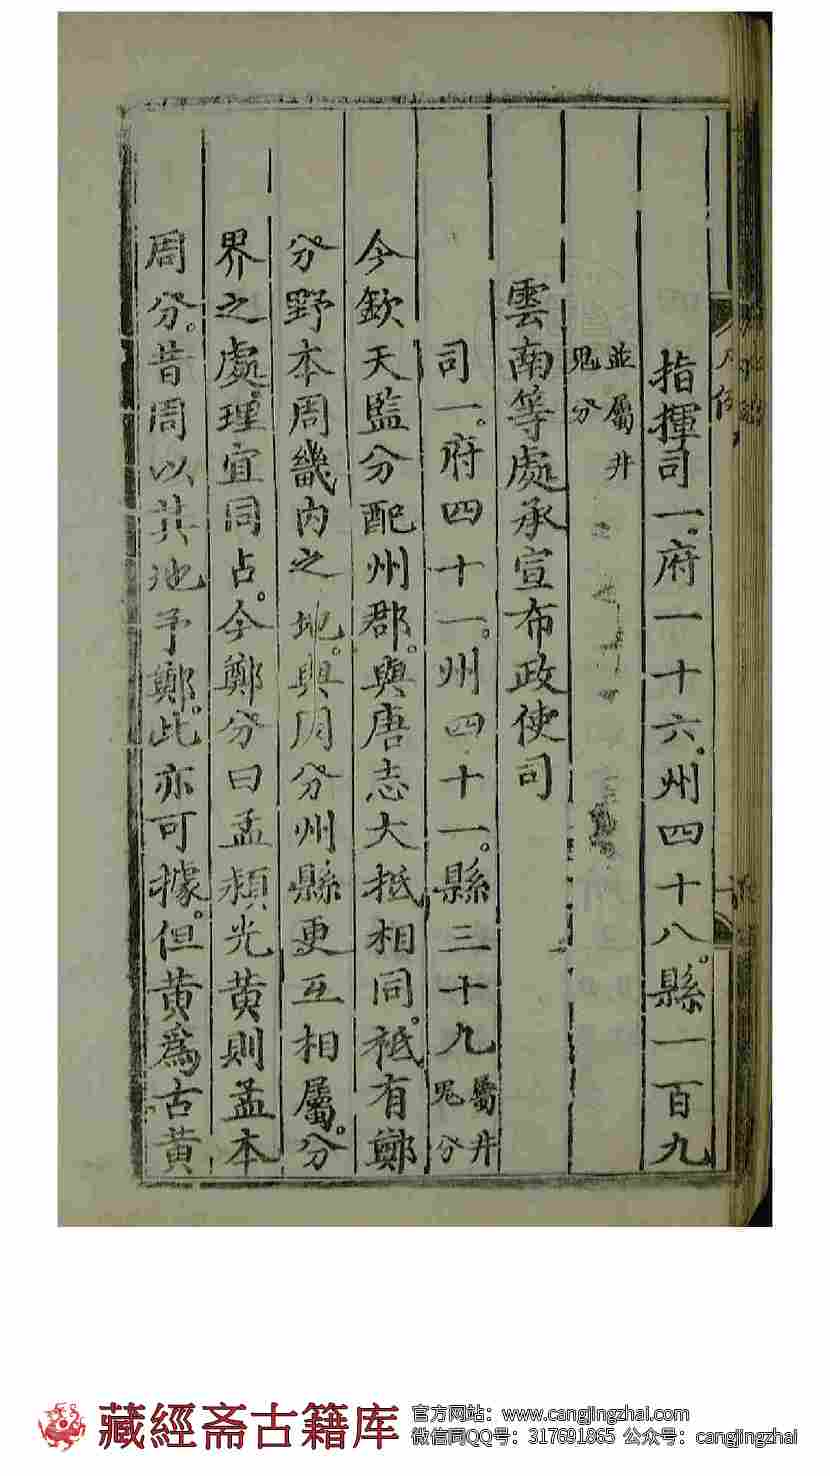 指揮司一。府一十六。州四十八。縣一百九
並屬井
鬼分
雲南等處承宣布政使司
司一。府四十一。州四十一。縣三十九屬井
鬼分
今欽天監分配州郡。與唐志大抵相同。秪有鄭
分。野本周畿内之地。與周分州縣更互相屬。分
界之處。理宜同占。今鄭分曰孟頮光黄則孟本
周分。昔周以其地予鄭。此亦可據。但黄爲古黄
藏經斋古籍库
官方网站：www.cangjingzhai.com
微信同QQ号：317691865 公众号：cangjingzhai